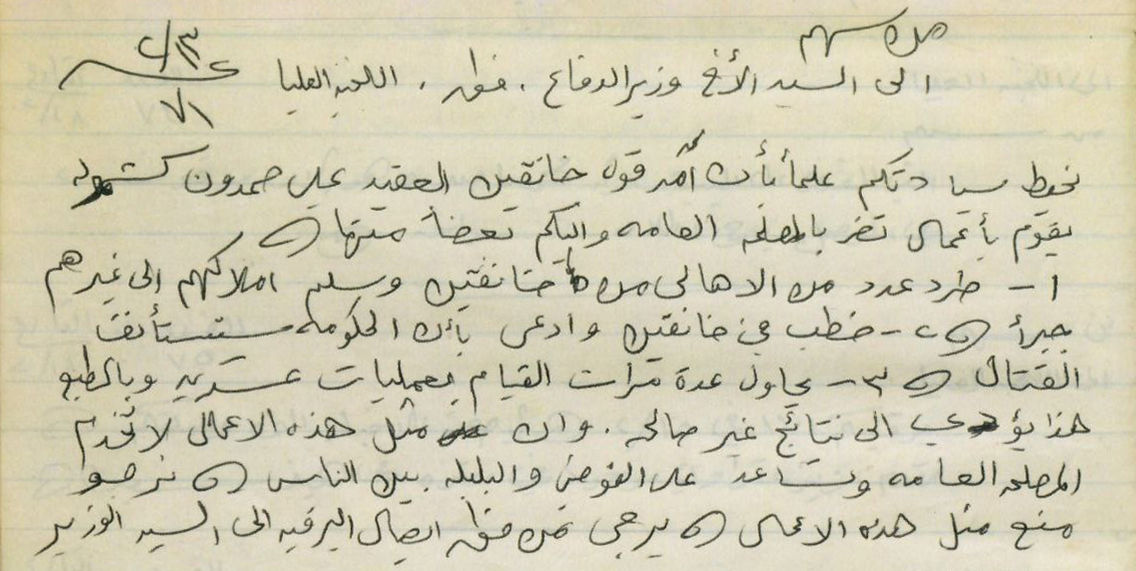 من سهم
الى السيد الأخ وزير الدفاع . فقط . اللجنة العليا
نحيط سيادتكم علماً بأن آمر قوه خانقين العقيد علي حمدون كشموله
يقوم بأعمال تضر بالمصلحه العامه واليكم بعضاً منها (.)
١ - طرد عدد من الاهالي من خانقين وسلم املاكهم الى غيرهم
جبراً (.) ٢ - خطب في خانقين وادعى بأن الحكومه ستستأنف
القتال (.) ٣ - يحاول عدة مرات القيام بعمليات عسكريه وبالطبع
هذا يؤدي الى نتائج غير صالحه . وان مثل هذه الاعمال لا تخدم
المصلحه العامه وتساعد على الفوضى والبلبله بين الناس (.) نرجو
منع مثل هذه الاعمال (.) يرجى من ايصال البرقيه الى السيد الوزير